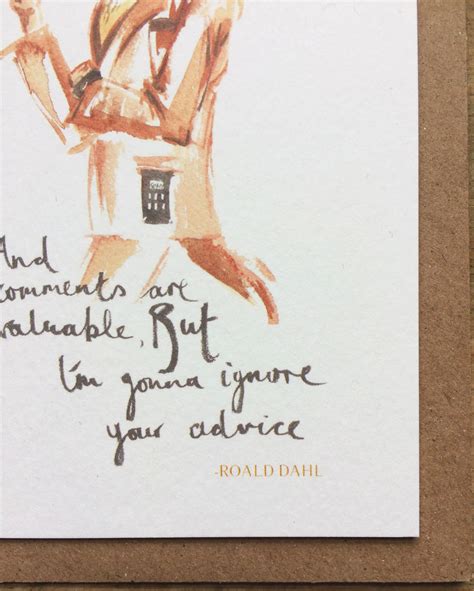 And
comments are
valuable, But
I'm gonna ignore
your advice
-ROALD DAHL